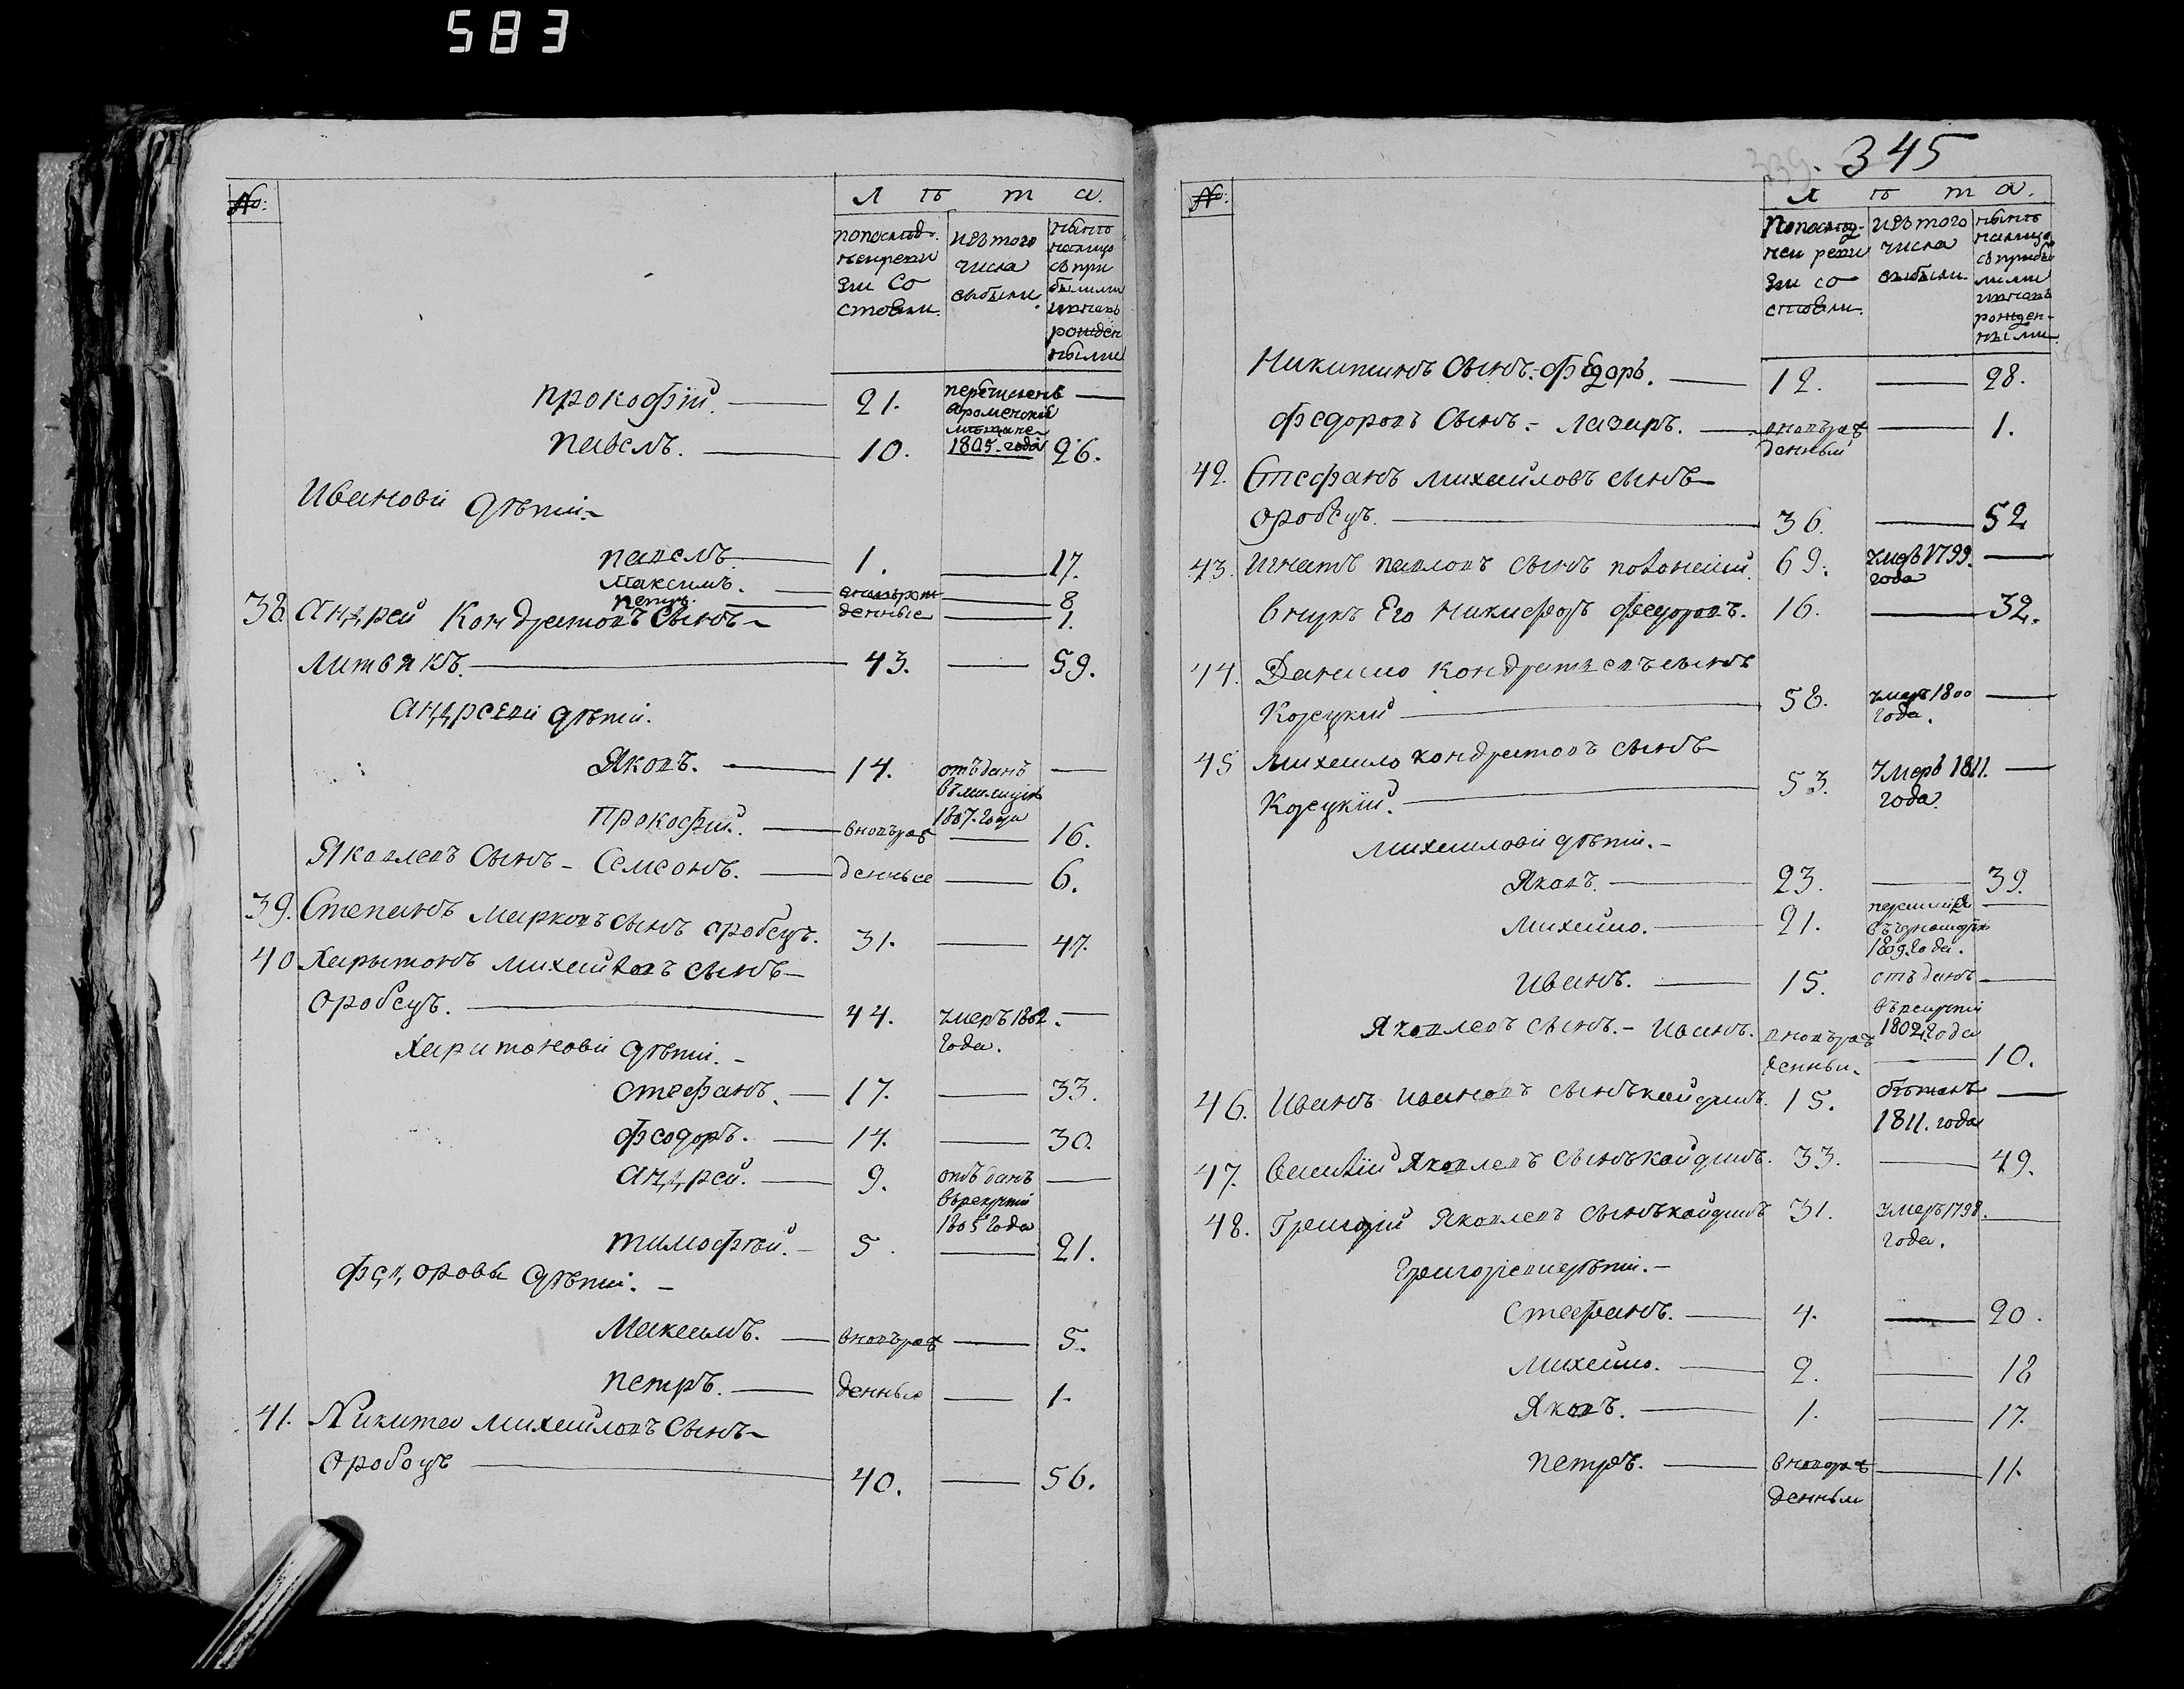 583
№:
Л ѣ т а.
попослѣд.
ней реви
зіи Со
стояли.
изъ того
числа
выбыли.
нынѣ
налицо
съ при
былыми
ивновь
рожден
ными
Прокофій. 21. перечисленъ
1805. года
Павелъ. 10. 26.
Ивановы дѣти
Павелъ. 1. 17.
Максимъ. вновьрож 8
Петръ. денные 1.
38. Андрей Кондратовъ Сынъ
Литвякъ. 43. 59.
Андреевы дѣти.
Яковъ. 14. отъданъ
вмилицію
1807. года
Прокофій. вновьрож 16.
Яковлевъ Сынъ - Семеонъ. денные 6.
39. Степанъ Марковъ Сынъ оробецъ. 31. 47.
40 Харытонъ Михайловъ Сынъ
Оробецъ. 44. Умеръ 1802.
года.
Харитоновы дѣти.
Стефанъ. 17. 33.
Федоръ. 14. 30.
Андрей. 9. отъданъ
врекруты
1805 года
Тимофѣй. 5. 21.
Федоровы дѣти.
Максимъ. вновьрож 5.
Петръ. денные 1.
41. Никита Михайловъ Сынъ
Оробецъ 40. 56.
339. 345
№:
Л ѣ т а.
Попослѣд-
ней реви
зіи со
стояли.
изъ того
числа
выбыли.
нынѣ
налицо
съ прибы
лыми
ивновь
рожден-
ными
Никитинъ Сынъ. Федоръ. 12. 28.
Федоровъ Сынъ. - Лазарь. вновьрож 1.
денный
42. Стефанъ Михайловъ сынъ
Оробецъ. 36. 52
43. Игнатъ Павловъ Сынъ 69. Умеръ 1799.
года
Внукъ Его Никифоръ Федоровъ. 16. 32.
44. Данило Кондратьевъ сынъ
Корецкій 58. Умеръ 1800
года.
45 Михайло Кондратовъ Сынъ
Корецкій. 53. Умеръ 1811.
года.
Михайловы дѣти.
Яковъ. 23. 39.
Михайло. 21.
1809. года.
Иванъ. 15. отъданъ
врекруты
1802. года
Яковлевъ Сынъ. - Иванъ. вновьрож
денный. 10.
46. Иванъ Ивановъ Сынъ кайдашъ. 15. бѣжалъ
1811. года
47. Василій Яковлевъ Сынъ кайдашъ. 33. 49.
48. Григорій Яковлевъ Сынъ кайдашъ 31. Умеръ 1798.
года.
Григоріевы дѣти.
Стефанъ. 4. 20.
Михайло. 2. 18
Яковъ. 1. 17.
Петръ. вновьрож 11.
денный